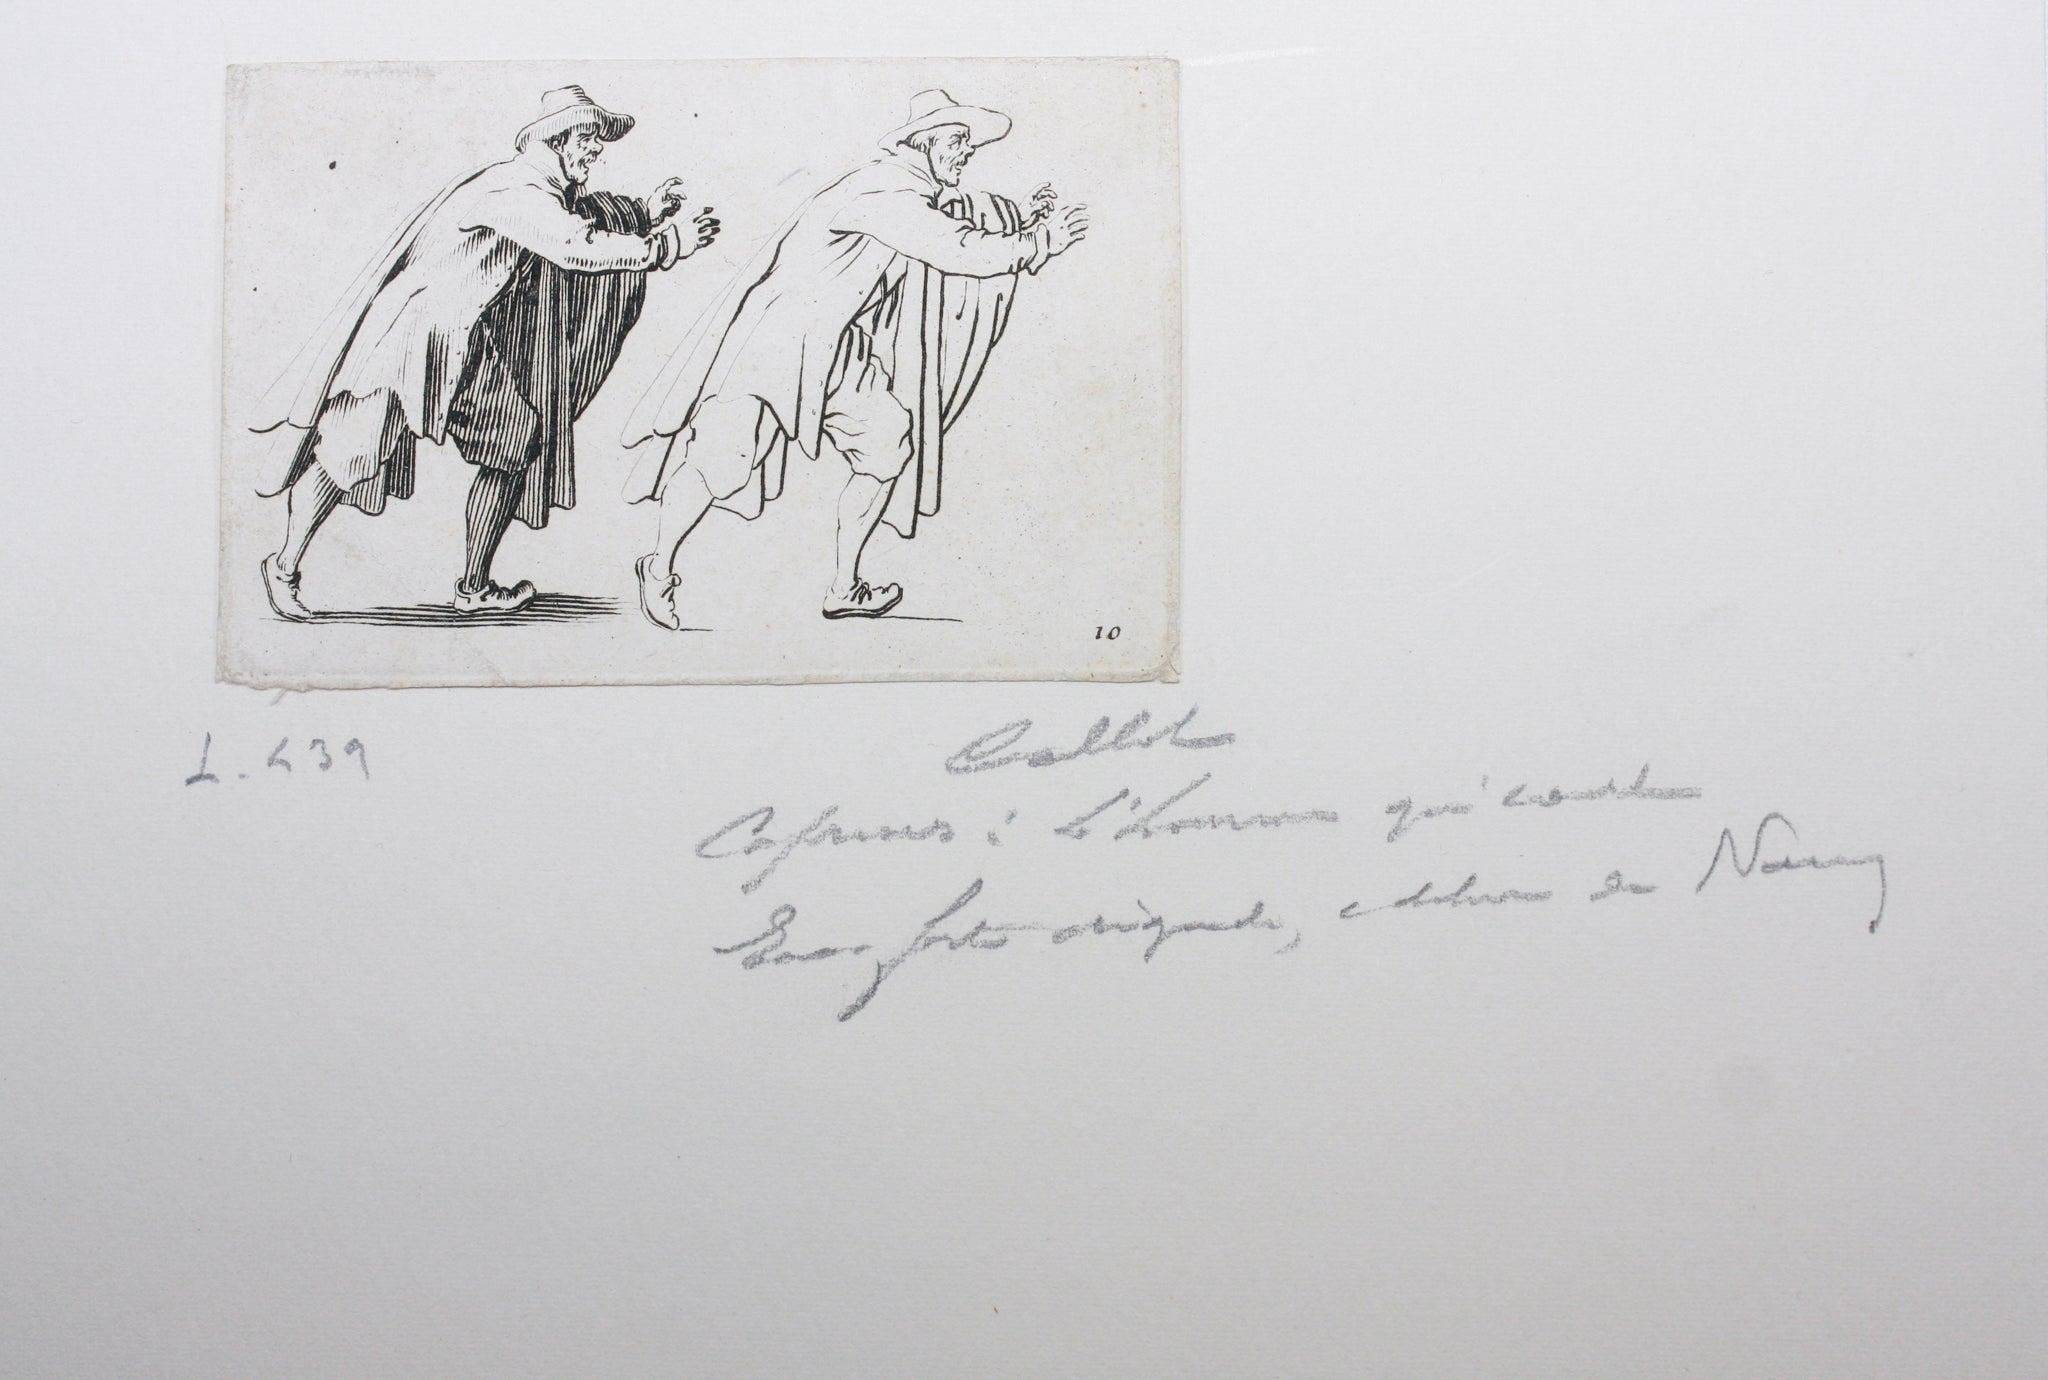 10
L. 439
Callot
Caprices : L'homme qui
Eau forte originale, édition de Nancy